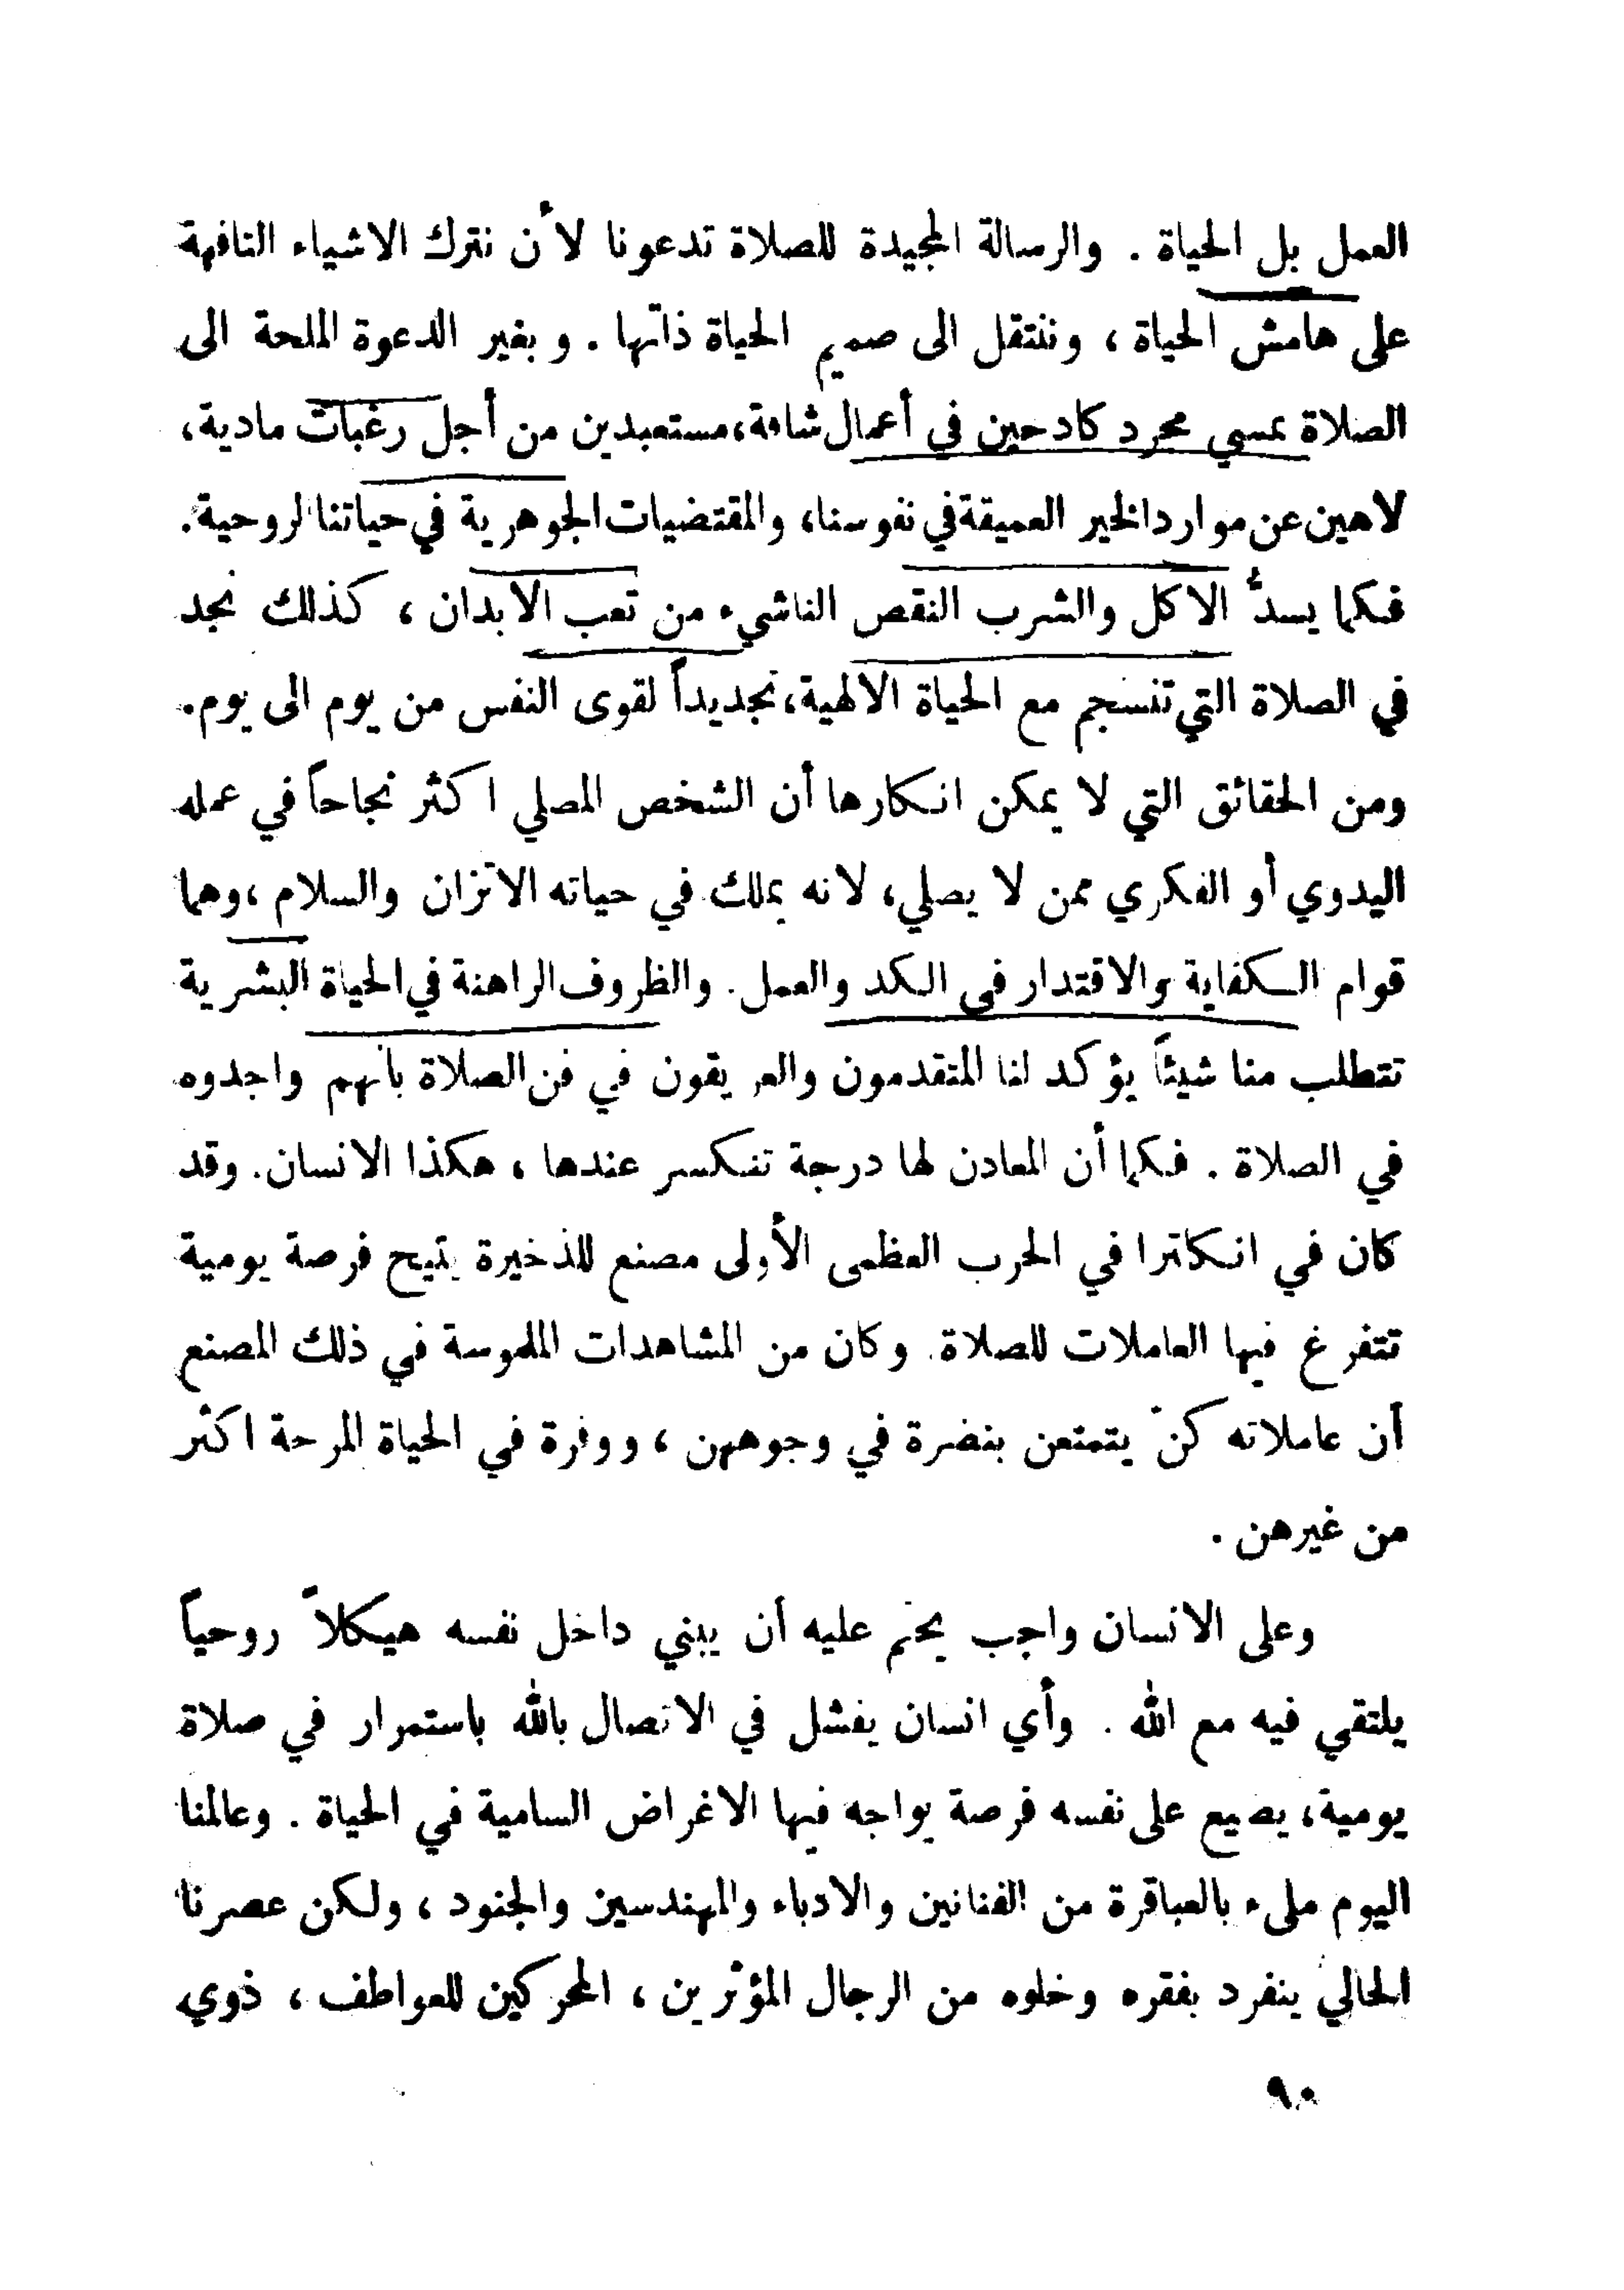 العمل بل الحياة . والرسالة المجيدة للصلاة تدعونا لأن نترك الاشياء التافهة
على هامش الحياة ، وننتقل الى صميم الحياة ذاتها . وبغير الدعوة الملحة الى
الصلاة نمسي مجرد كادحين في أعمال شاقة، مستعبدين من أجل رغبات مادية،
لاهين عن موارد الخير العميقة في نفوسنا، والمقتضيات الجوهرية في حياتنا الروحية.
فكما يسدُّ الاكل والشرب النقص الناشيء من تعب الابدان ، كذلك نجد
في الصلاة التي تنسجم مع الحياة الالهية، تجديداً لقوى النفس من يوم الى يوم.
ومن الحقائق التي لا يمكن انكارها أن الشخص المصلي اكثر نجاحاً في عمله
اليدوي أو الفكري ممن لا يصلي، لانه يملك في حياته الاتزان والسلام ، وهما
قوام الكفاية والاقتدار في الكد والعمل. والظروف الراهنة في الحياة البشرية
تتطلب منا شيئاً يؤكد لنا المتقدمون والعريقون في فن الصلاة بأنهم واجدوه
في الصلاة . فكما أن المعادن لها درجة تنكسر عندها ، هكذا الانسان. وقد
كان في انكلترا في الحرب العظمى الأولى مصنع للذخيرة يتيح فرصة يومية
تتفرغ فيها العاملات للصلاة. وكان من المشاهدات الملموسة في ذلك المصنع
أن عاملاته كنّ يتمتعن بنضرة في وجوههن ، ووفرة في الحياة المرحة اكثر
من غيرهن .
وعلى الانسان واجب يحتم عليه أن يبني داخل نفسه هيكلاً روحياً
يلتقي فيه مع الله . وأي انسان يفشل في الاتصال بالله باستمرار في صلاة
يومية، يضيع على نفسه فرصة يواجه فيها الاغراض السامية في الحياة . وعالمنا
اليوم مليء بالعباقرة من الفنانين والادباء والمهندسين والجنود ، ولكن عصرنا
الحالي ينفرد بفقره وخلوه من الرجال المؤثرين ، المحركين للعواطف ، ذوي
٩٠